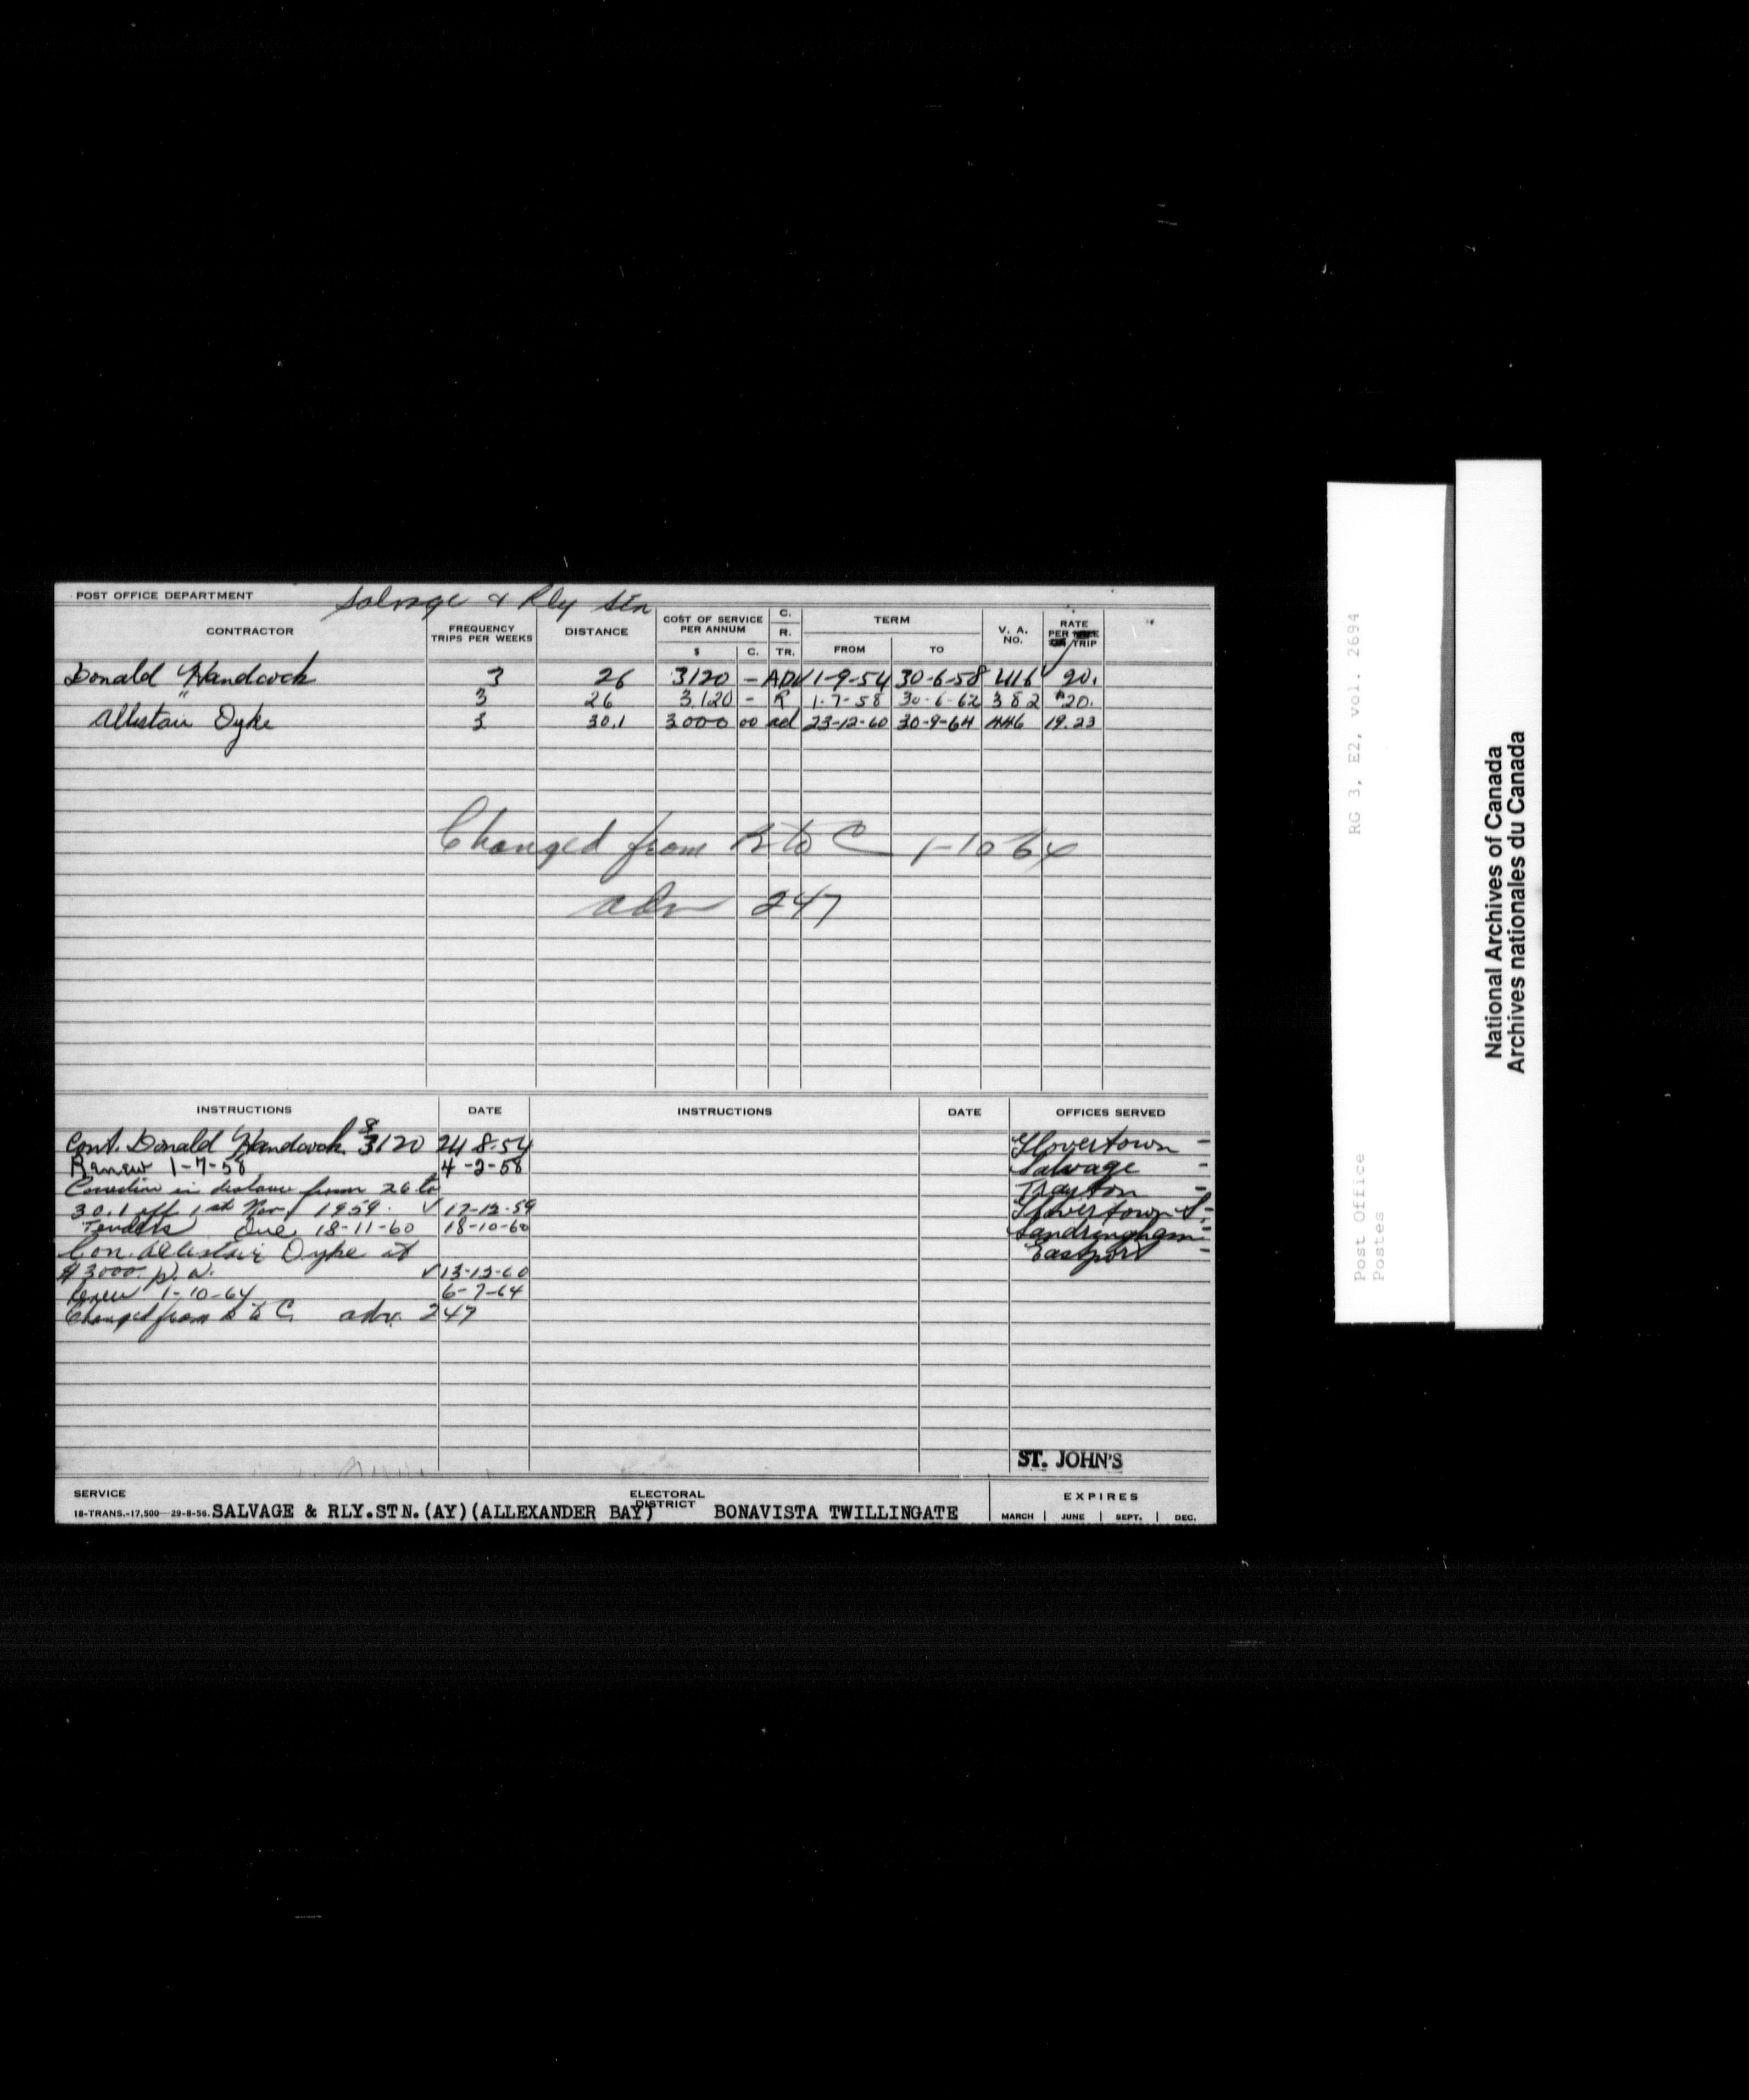 POST OFFICE DEPARTMENT Salvage & Rly Stn
CONTRACTOR FREQUENCY TRIPS PER WEEKS DISTANCE COST OF SERVICE PER ANNUM $ C. C. R. TR. TERM FROM TO V. A. NO. RATE PER TRIP
Donald Handcock 3 26 3120 - ADV 1-9-54 30-6-58 L116 20.
" 3 26 3,120 - R 1-7-58 30-6-62 382 $20.
Allistair Dyke 3 30.1 3000 00 ad 23-12-60 30-9-64 446 19.23
Changed from R to C 1-10 64
adv 247
INSTRUCTIONS DATE INSTRUCTIONS DATE OFFICES SERVED
Cont. Donald Handcock $3120 24-8-54 Glovertown -
Renew 1-7-58 4-2-58 Salvage -
Correction in distance from 26 to Trayton -
30.1 eff 1st Nov 1959. √ 17-12-59 Glovertown S. -
Tenders Due 18-11-60 18-10-60 Sandringham -
Con. Allistair Dyke at Eastport -
$3000. p.a. √ 13-12-60
Renew 1-10-64 6-7-64
Changed from R to C adv. 247
ST. JOHN'S
SERVICE ELECTORAL DISTRICT EXPIRES
18-TRANS.-17,500-29-8-56. SALVAGE & RLY.STN.(AY)(ALLEXANDER BAY) BONAVISTA TWILLINGATE MARCH JUNE SEPT. DEC.
Post Office RG 3, E2, vol. 2694
Postes
National Archives of Canada
Archives nationales du Canada